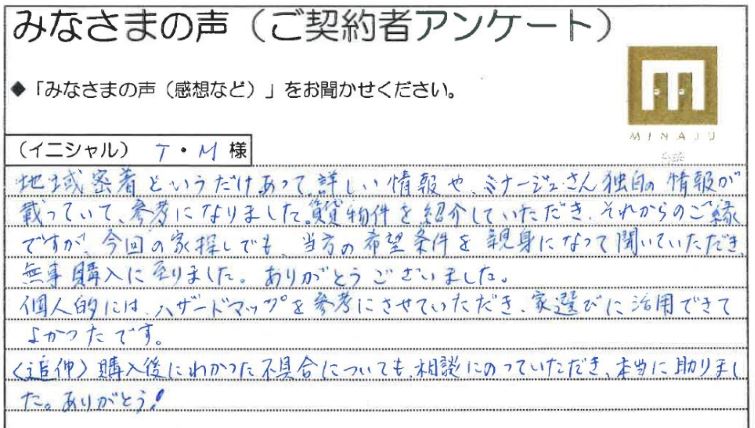 みなさまの声（ご契約者アンケート）
◆「みなさまの声（感想など）」をお聞かせください。
MINAJU
（イニシャル） T・M 様
地域密着というだけあって、詳しい情報や、ミナージュさん独自の情報が
載っていて、参考になりました。賃貸物件を紹介していただき、それからのご縁
ですが、今回の家探しでも、当方の希望条件を親身になって聞いていただき、
無事購入に至りました。ありがとうございました。
個人的には、ハザードマップを参考にさせていただき、家選びに活用できて
よかったです。
〈追伸〉購入後にわかった不具合についても、相談にのっていただき、本当に助りまし
た。ありがとう!